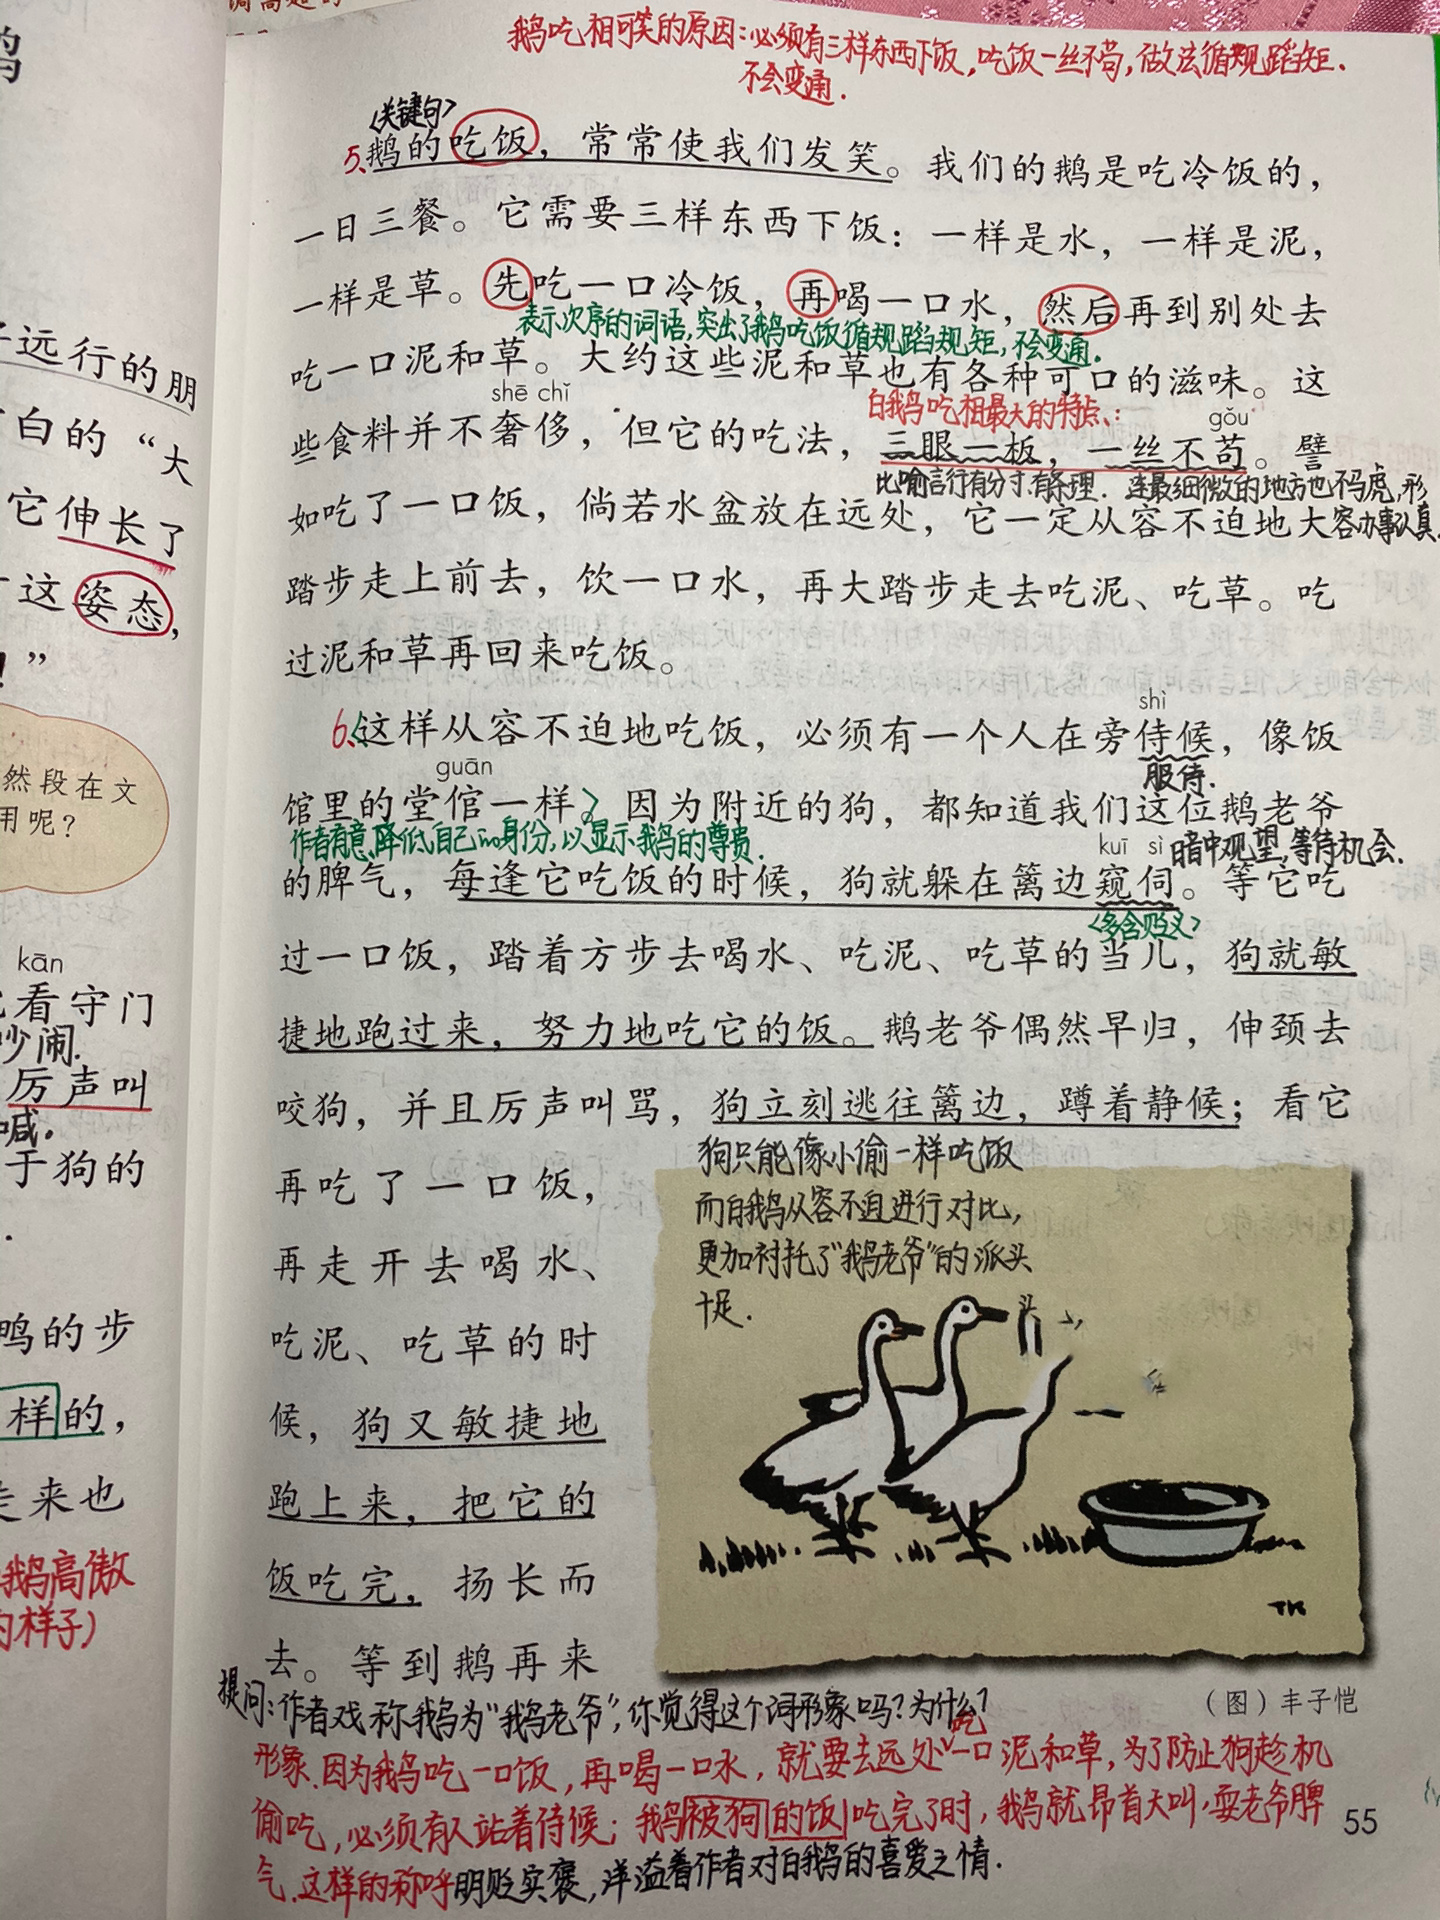 我鹅吃相可笑的原因:必须有三样东西下饭,吃饭一丝不苟,做法循规蹈矩.
不会变通.
<关键句>
5、鹅的吃饭，常常使我们发笑。我们的鹅是吃冷饭的，
一日三餐。它需要三样东西下饭：一样是水，一样是泥，
一样是草。先吃一口冷饭，再喝一口水，然后再到别处去
表示次序的词语,突出了我鹅吃饭循规蹈规矩,不会变通.
吃一口泥和草。大约这些泥和草也有各种可口的滋味。这
shē chǐ
白我鹅吃相最大的特点、:
gǒu
些食料并不奢侈，但它的吃法，三眼一板，一丝不苟。譬
比喻言行有分寸.有条理. 连最细微的地方也不马虎,形
容办事认真.
如吃了一口饭，倘若水盆放在远处，它一定从容不迫地大
踏步走上前去，饮一口水，再大踏步走去吃泥、吃草。吃
过泥和草再回来吃饭。
shì
6、<这样从容不迫地吃饭，必须有一个人在旁侍候，像饭
服侍.
guān
馆里的堂倌一样>，因为附近的狗，都知道我们这位鹅老爷
作者有意降低自己的身份,以显示我鹅的尊贵.
kuī sì
暗中观望,等待机会.
的脾气，每逢它吃饭的时候，狗就躲在篱边窥伺。等它吃
<多含贬义>
过一口饭，踏着方步去喝水、吃泥、吃草的当儿，狗就敏
捷地跑过来，努力地吃它的饭。鹅老爷偶然早归，伸颈去
咬狗，并且厉声叫骂，狗立刻逃往篱边，蹲着静候；看它
再吃了一口饭，
再走开去喝水、
吃泥、吃草的时
候，狗又敏捷地
跑上来，把它的
饭吃完，扬长而
去。等到鹅再来
狗只能像小偷一样吃饭
而白我鹅从容不迫进行对比,
更加衬托了"我鹅老爷"的派头
十足.
TK
（图）丰子恺
提问:作者戏称我鹅为"我鹅老爷",你觉得这个词形象吗?为什么?
形象.因为我鹅吃一口饭,再喝一口水,就要去远处吃一口泥和草,为了防止狗趁机
偷吃,必须有人站着侍候;我鹅被狗的饭吃完了时,我鹅就昂首大叫,耍老爷脾
气.这样的称呼明贬实褒,洋溢着作者对白我鹅的喜爱之情.
55
远行的朋
白的“大
它伸长了
这姿态，
！”
然段在文
用呢？
kān
看守门
吵闹.
厉声叫
喊.
于狗的
鸭的步
样的，
走来也
我鹅高傲
的样子)